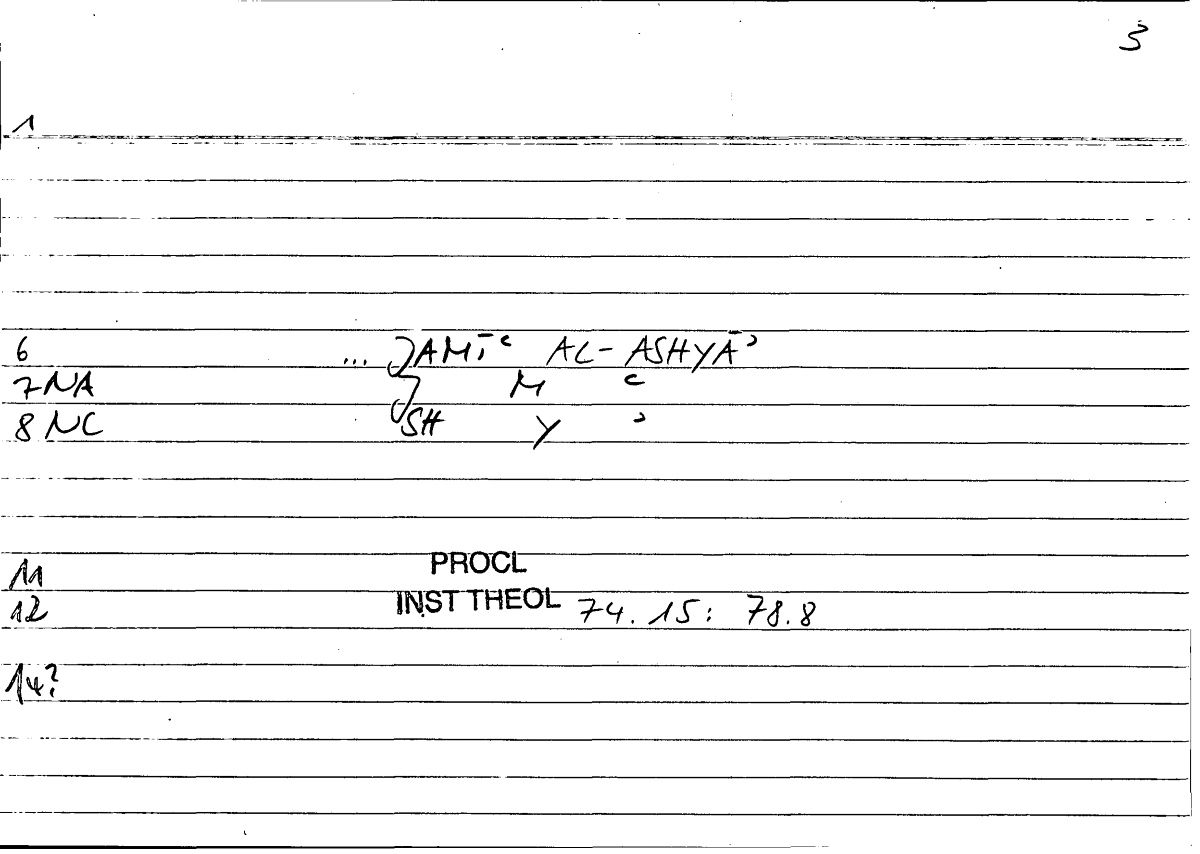 3
1
6 ... JAMĪʿ AL-ASHYĀʾ
7 NA J M ʿ
8 NC SH Y ʾ
11 PROCL
12 INST THEOL 74.15: 78.8
14?